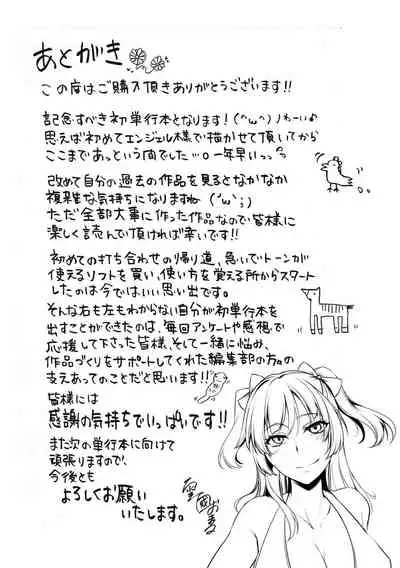 あとがき
この度はご購入頂きありがとうございます!!
記念すべき初単行本となります!(^ω^)わーい♪
思えば初めてエンジェル様で描かせて頂いてから
ここまであっという間でした…。一年早いっっ
改めて自分の過去の作品を見るとなかなか
複雑な気持ちになりますね('ω';)
ただ全部大事に作った作品なので皆様に
楽しく読んで頂ければ幸いです!!
初めての打ち合わせの帰り道、急いでトーンが
使えるソフトを買い、使い方を覚える所からスタート
したのは今ではいい思い出です。
そんな右も左もわからない自分が初単行本を
出すことができたのは、毎回アンケートや感想で
応援して下さった皆様、そして一緒に悩み、
作品づくりをサポートしてくれた編集部の方々の
支えあってのことだと思います!!
皆様には
感謝の気持ちでいっぱいです!!
また次の単行本に向けて
頑張りますので、
今後とも
よろしくお願い
いたします。